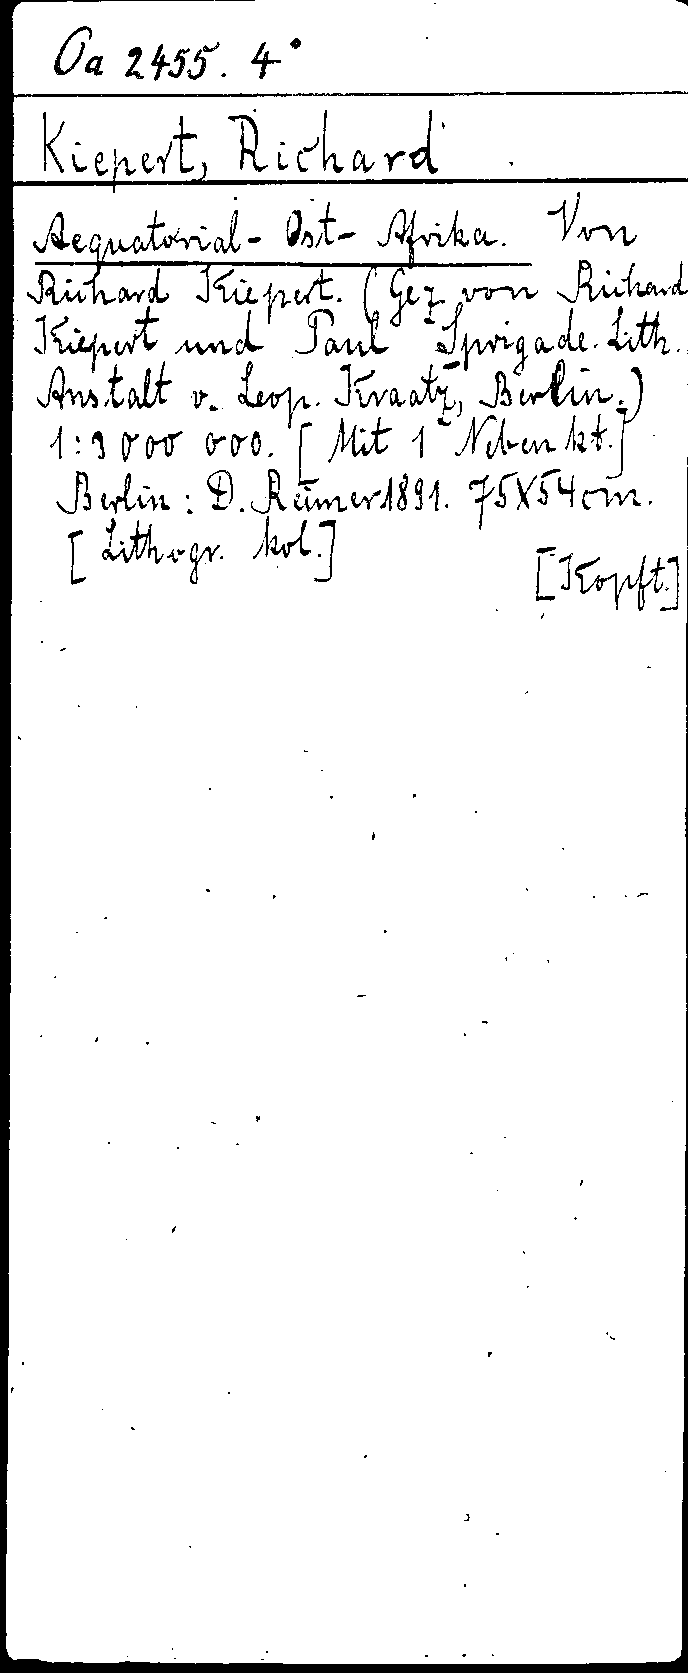 Oa 2455. 4°
Kiepert, Richard
Aequatorial-Ost-Afrika. Von
Richard Kiepert. (Gez von Richard
Kiepert und Paul Sprigade. Lith.
Anstalt v. Leop. Kraatz, Berlin.)
1:3000 000. [Mit 1 Nebenkt.]
Berlin: D. Reimer 1891. 75X54cm.
[Lithogr. kol.]
[Kopft.]